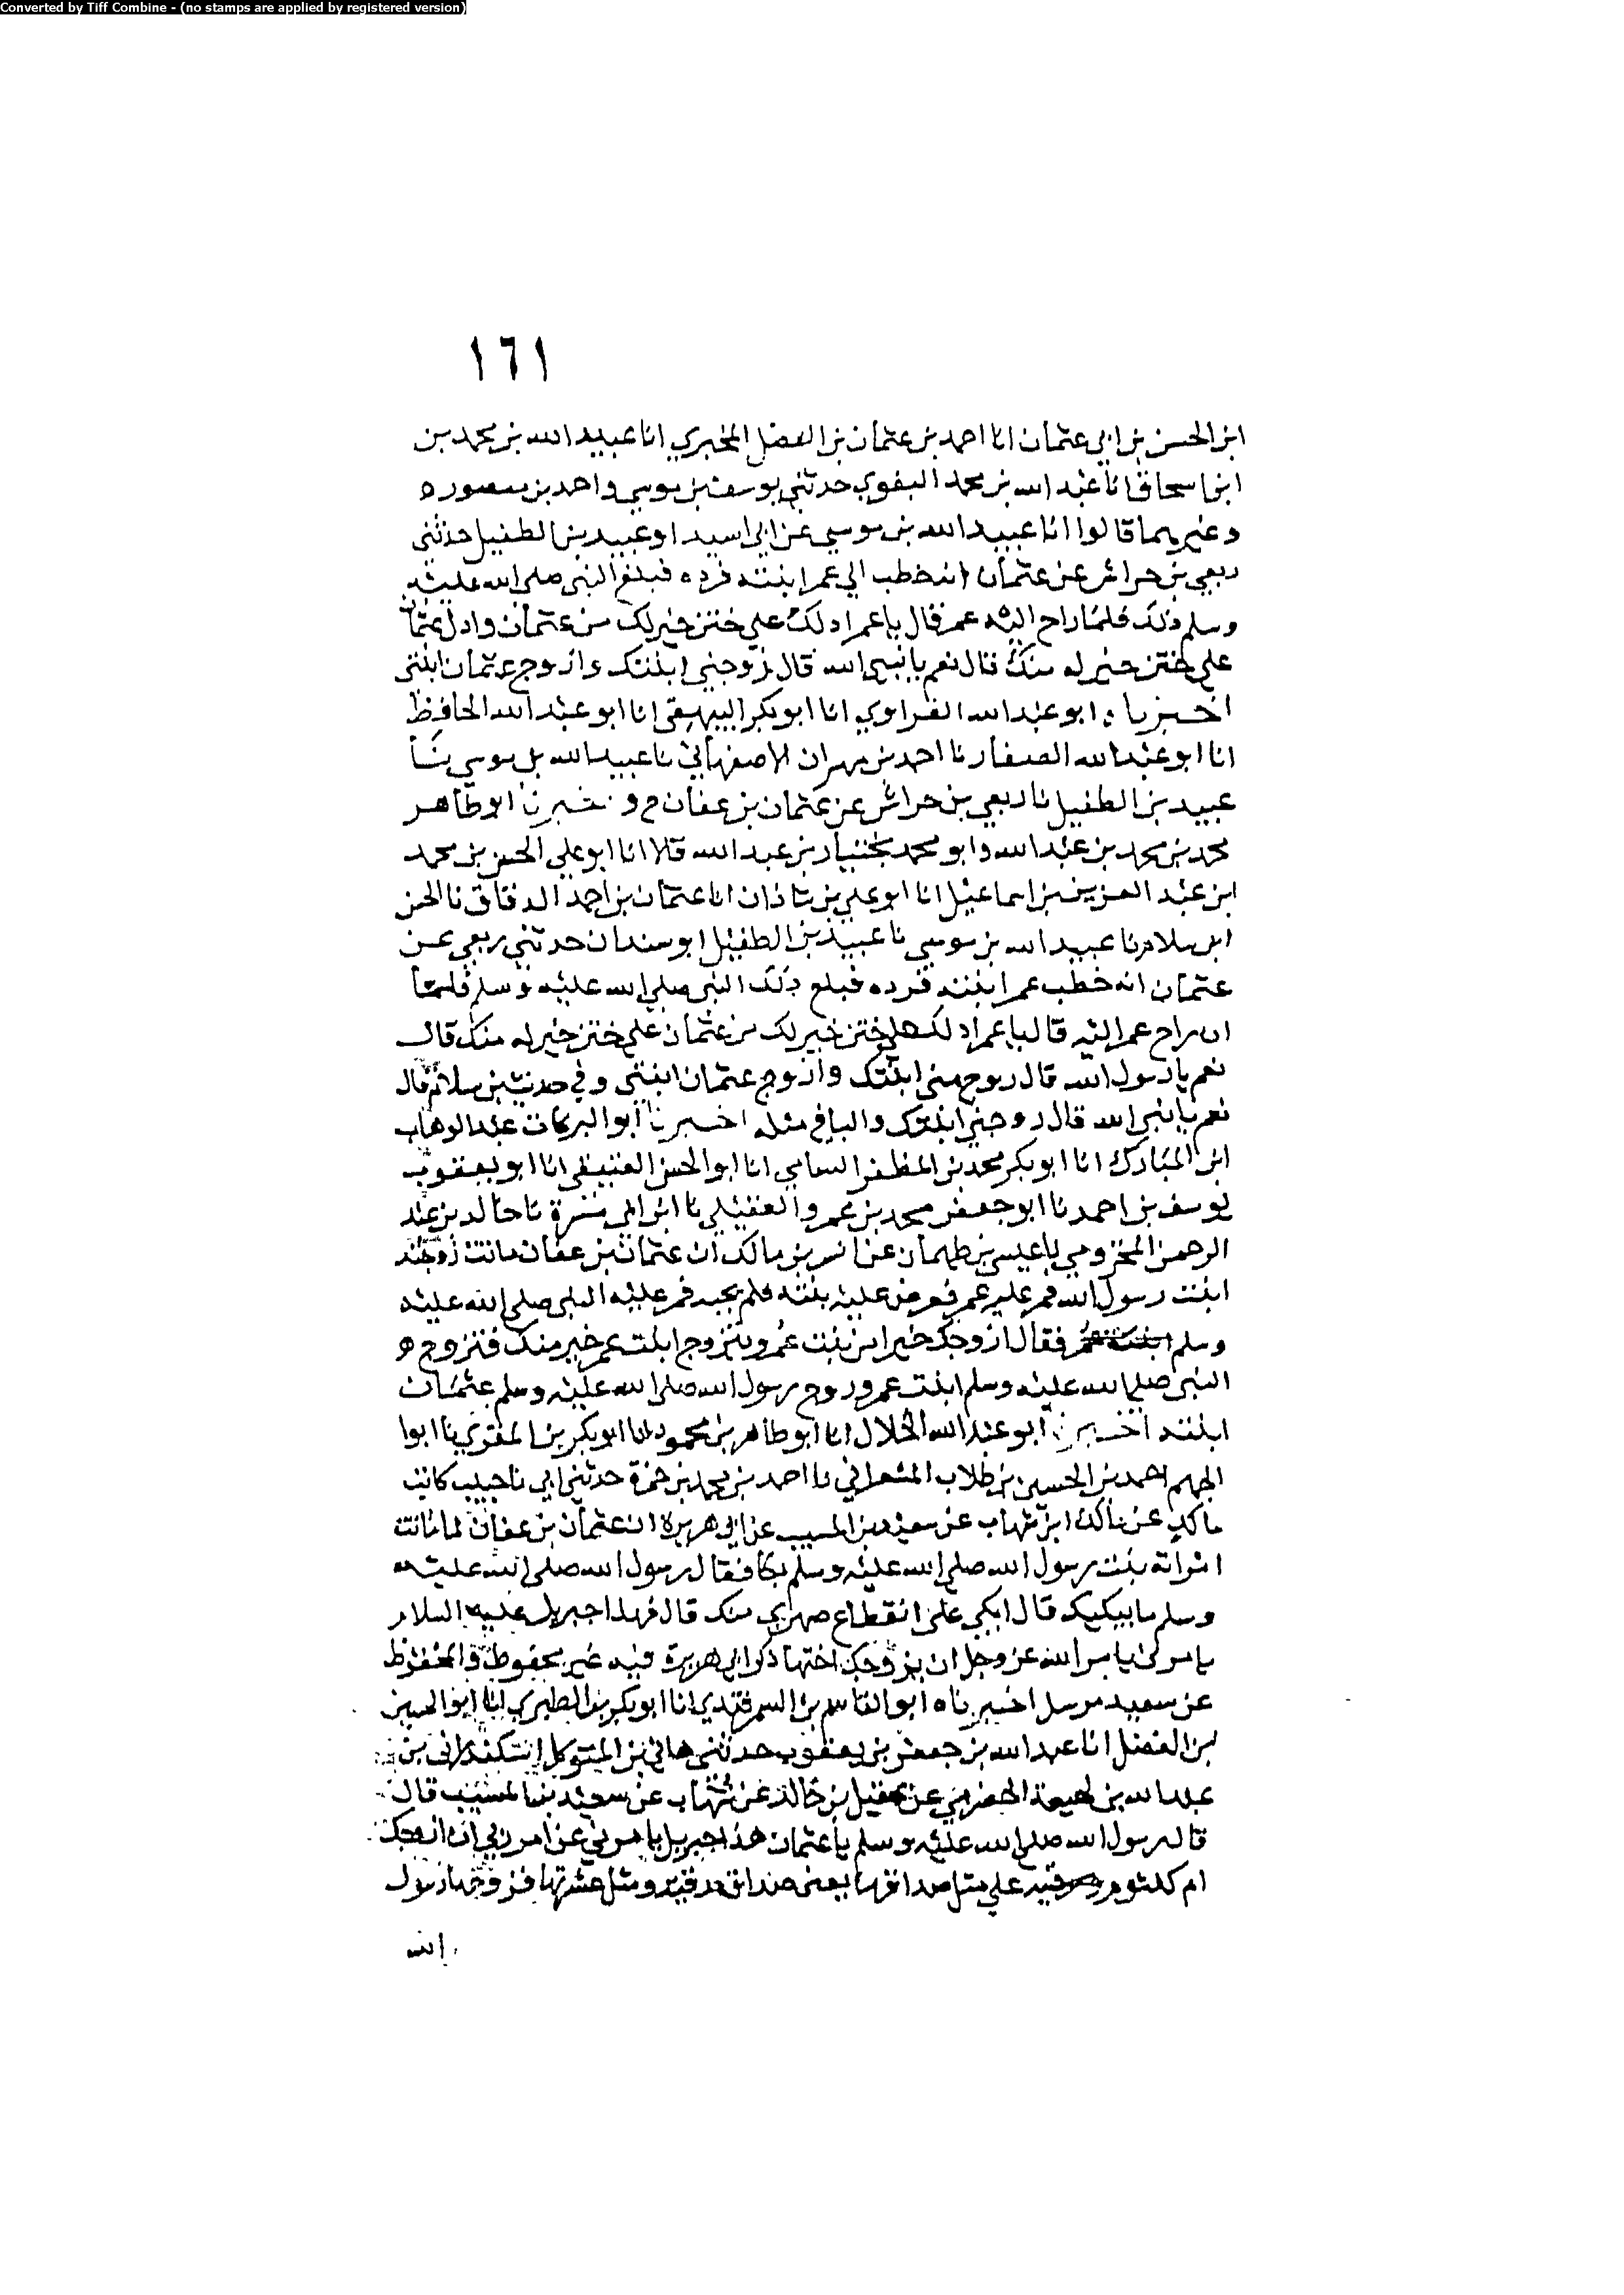 Converted by Tiff Combine - (no stamps are applied by registered version)
١٦١
ابن الحسن بن ابي عثمان انا احمد بن عثمان بن الفضل المخبري انا عبيد الله بن محمد بن
ابن اسحاق انا عبد الله بن محمد البغوي حدثني يوسف بن موسي واحمد بن منصور ه
وغيرهما قالوا انا عبيد الله بن موسي عن ابي اسيد او عبيد بن الطفيل حدثني
ربعي بن حراش عن عثمان انه خطب الي عمر ابنته فرده فبلغ النبي صلي الله عليه
وسلم ذلك فلما راح اليه عمر قال يا عمر ادلك علي ختن خير لك من عثمان وادل عثمان
علي ختن خير له منك قال نعم يا نبي الله قال زوجني ابنتك وازوج عثمان ابنتي
اخبرنا ابو عبد الله الفراوي انا ابو بكر البيهقي انا ابو عبد الله الحافظ
انا ابو عبد الله الصفار نا احمد بن مهران الاصفهاني نا عبيد الله بن موسي نا
عبيد بن الطفيل نا ربعي بن حراش عن عثمان بن عفان ح و اخبرنا ابو طاهر
محمد بن محمد بن عبد الله وابو محمد بختيار بن عبد الله قالا انا ابو علي الحسن بن محمد
ابن عبد العزيز بن اسماعيل انا ابو علي بن شاذان انا عثمان بن احمد الدقاق نا الحسن
ابن سلام نا عبيد الله بن موسي نا عبيد بن الطفيل ابو سندان حدثني ربعي عن
عثمان انه خطب عمر ابنته فرده فبلغ ذلك النبي صلي الله عليه وسلم فلما
ان راح عمر اليه قال يا عمر ادلك علي ختن خير لك من عثمان علي ختن خير له منك قال
نعم يا رسول الله قال زوجني ابنتك وازوج عثمان ابنتي وفي حديث بن سلام قال
نعم يا نبي الله قال زوجني ابنتك والباقي مثله اخبرنا ابو البركات عبد الوهاب
ابن المبارك انا ابو بكر محمد بن المظفر السامي انا ابو الحسن العتيقي انا ابو يعقوب
يوسف بن احمد نا ابو جعفر محمد بن عمرو العقيلي نا ابن ابي مسرة نا خالد بن عبد
الرحمن المخزومي نا عيسي بن طهمان عن انس بن مالك ان عثمان بن عفان ماتت زوجته
ابنت رسول الله فمر عليه عمر فعرض عليه بنته فلم يجبه فمر عليه النبي صلي الله عليه
وسلم فقال ازوجك خيرا من بنت عمر ويتزوج ابنت عمر خير منك فتزوج ه
النبي صلي الله عليه وسلم ابنت عمر وزوج رسول الله صلي الله عليه وسلم عثمان
ابنته اخبرنا ابو عبد الله الخلال انا ابو طاهر بن محمود انا ابو بكر بن المقري نا ابوا
الجهم احمد بن الحسين بن طلاب المشعراني نا احمد بن محمد بن حمزة حدثني ابي نا حبيب كاتب
مالك عن مالك ابن شهاب عن سعيد بن المسيب عن ابي هريرة ان عثمان بن عفان لما ماتت
امراته بنت رسول الله صلي الله عليه وسلم بكا فقال رسول الله صلي الله عليه
وسلم ما يبكيك قال ابكي علي انقطاع صهري منك قال فهذا جبريل عليه السلام
يامرني يامر الله عز وجل ان يزوجك اختها ذكر ابي هريرة فيه غير محفوظ والمحفوظ
عن سعيد مرسل اخبرناه ابو القاسم بن السمرقندي انا ابو بكر بن الطبري انا ابو الحسين
بن الفضل انا عبد الله بن جعفر بن يعقوب حدثني هاني بن المتوكل
عبد الله بن لهيعة الحضرمي عن عقيل بن خالد عن شهاب عن سعيد بن المسيب قال
قال رسول الله صلي الله عليه وسلم يا عثمان هذا جبريل يامرني عن امر ربي ان ازوجك
ام كلثوم علي مثل صداقها يعني صداق رقية ومثل عشرتها فزوجها رسول
الله